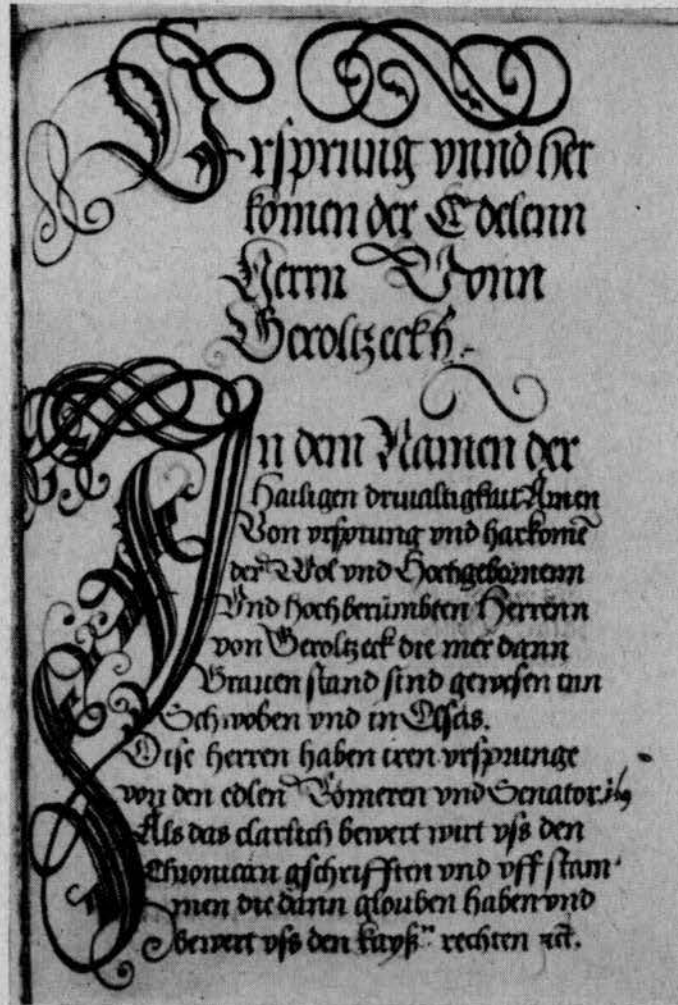 Ursprung vnnd her
komen der Edelenn
Herrn Vonn
Geroltzeckh.
In dem Namen der
Hailigen driualtigkait Amen
Von vrsprung vnd harkomē
der Wol vnd Hochgebornenn
Vnd hochberümbten Herrenn
von Geroltzeck die mer dann
Grauen stand sind gewesen inn
Schwoben vnd in Elsas.
Dise herren haben iren vrsprunge
von den edlen Römeren vnd Senator.
Als das clarlich bewert wirt vss den
Chronican gschrifften vnd vff stam
men die dann glouben haben vnd
bewert vss den kayß.n rechten